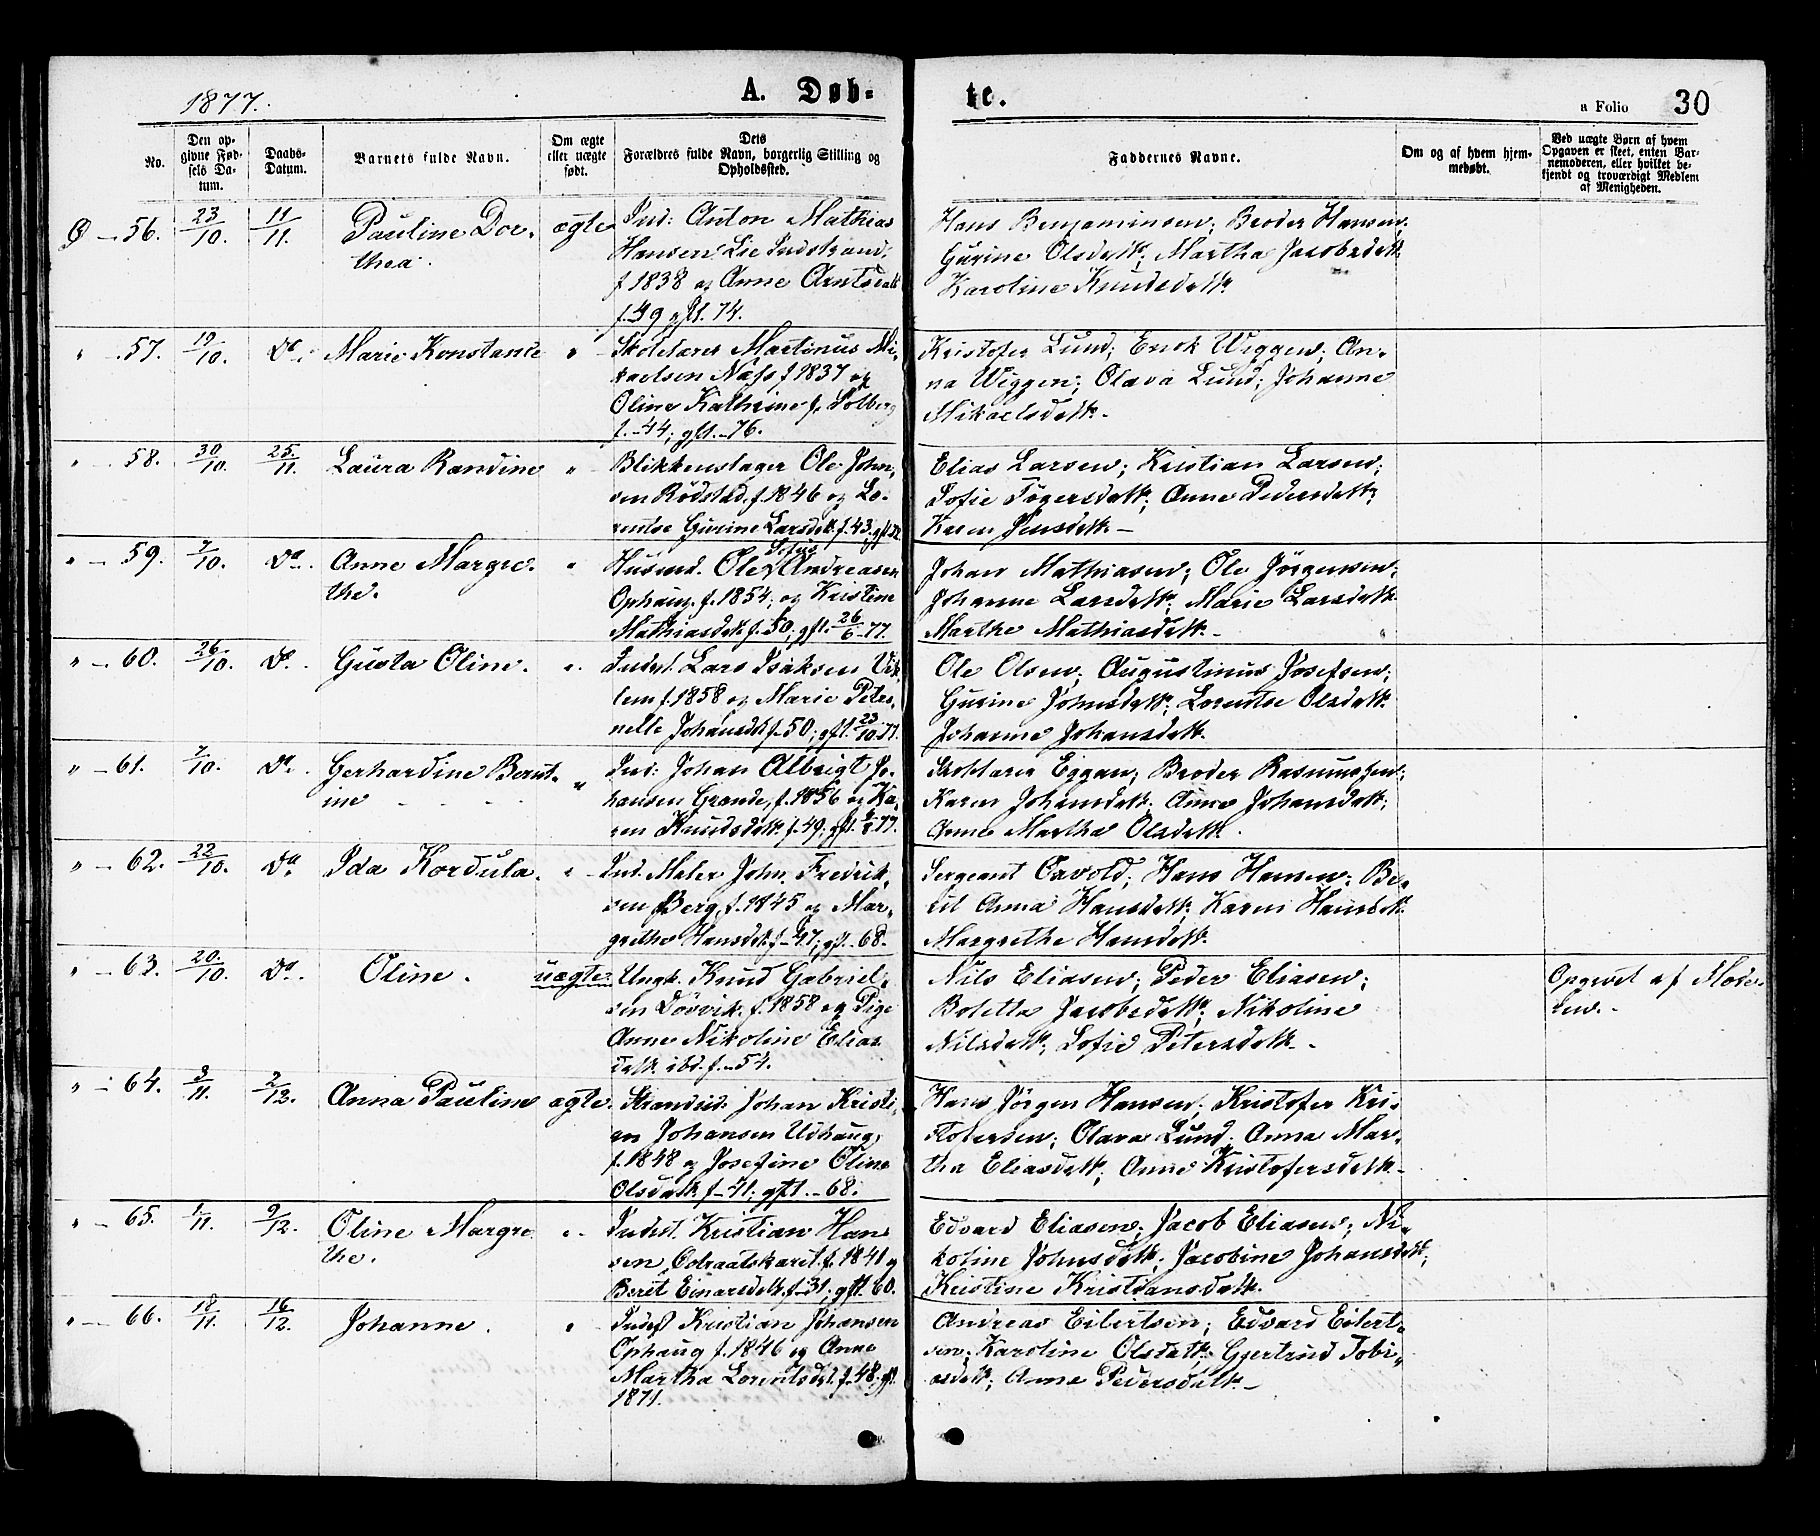 1877.
A. Døb-
te.
a Folio 30
No.
Den op-
givne Fød-
sels Da-
tum.
Daabs-
Datum.
Barnets fulde Navn.
Om ægte
eller uægte
født.
Dets
Forældres fulde Navn, borgerlig Stilling og
Opholdssted.
Faddernes Navne.
Om og af hvem hjem-
medøbt.
Ved uægte Børn af hvem
Opgaven er skeet, enten Bar-
nemoderen, eller hvilket be-
kjendt og troværdigt Medlem
af Menigheden.
Ø - 56. 23/10. 11/11. Pauline Dor-
thea.
ægte
Ind: Anton Mathias
Hansen Lie Indstrand.
f 1838 og Anne Arntsdatt
f. 39 gft. 74.
Hans Benjaminsen; Broder Hansen;
Gurine Olsdatt; Martha Jacobsdatt
Karoline Knudsdatt.
" - 57. 19/10. Do. Marie Konstance "
Skolelærer Martinus Mi-
kaelsen Næss f 1837 og
Oline Kathrine f. Solberg
f. -44; gft. -76.
Kristofer Lund; Erik Wiggen; An-
na Wiggen; Olava Lund; Johanne
Mikaelsdatt.-
" - 58. 30/10. 25/11. Laura Randine "
Blikkenslager Ole John-
sen Rødstad f. 1846 og Lo-
rentse Gurine Larsdatt. f. 43. gft
Elias Larsen; Kristian Larsen;
Sofie Tøgersdatt; Anne Pedersdatt;
Karen Jensdatt.-
" - 59. 7/10. Do. Anne Margre-
the. "
Husmd. Ole Sefus Andreasen
Ophaug. f. 1854; og Kristine
Mathiasdatt. f. 50; gft. 26/6 -77.
Johan Mathiasen; Ole Jørgensen;
Johanne Larsdatt; Marie Larsdatt.
Marthe Mathiasdatt.-
" - 60. 26/10. Do. Gusta Oline. "
Indst. Lars Isaksen Vik-
lem f. 1858 og Marie Peter-
nelle Johansdatt f. 50; gft. 23/10 77.
Ole Olsen; Augustinus Josefsen;
Gurine Johnsdatt; Lorentse Olsdatt.
Johanne Johansdatt.
" - 61. 7/10. Do. Gerhardine Bernt-
ine "
Ind: Johan Albrigt Jo-
hansen Grande, f. 1856 og Ka-
ren Knudsdatt. f. 49; gft. 77.
Skolelærer Eggan; Broder Rasmussen;
Karen Johansdatt. Anne Johansdatt;
Anne Martha Olsdatt.
" - 62. 22/10. Do. Ida Kordula. "
Ind. Maler John Fredrik-
sen Berg, f. 1845 og Mar-
grethe Hansdatt. f -47; gft. -68-
Sergeant Oxvold; Hans Hansen; Be-
rit Anna Hansdatt; Karen Hansdatt.
Margrethe Hansdatt.
" - 63. 20/10. Do. Oline. uægte.
Ungk. Knud Gabriel-
sen Døsvik. f. 1858 og Pige
Anne Nikoline Elias
datt. ibd. f. -54.
Nils Eliasen; Peder Eliasen;
Boletta Jacobsdatt; Nikoline
Nilsdatt; Sofie Petersdatt.-
Opgivet af Mode-
ren.-
" - 64. 3/11. 2/12. Anna Pauline ægte.
Strandsid. Johan Kristi-
an Johansen Udhaug,
f. 1848 og Josefine Oline
Olsdatt f -41; gft. -68.
Hans Jørgen Hansen; Kristofer Kri-
stofersen; Olava Lund; Anna Mar-
tha Eliasdatt; Anne Kristofersdatt-
" - 65. 1/11. 9/12. Oline Margre
the. "
Indst. Kristian Han
sen, Osbraatskaret. f. 1841 og
Berit Einarsdatt. f -31; gft. 60.
Edvard Eliasen; Jacob Eliasen; Ni-
koline Johnsdatt; Jacobine Johansdatt;
Kristine Kristiansdatt.
" - 66. 18/11. 16/12. Johanne. "
Indst Kristian Johansen
Ophaug f. 1846 og Anne
Martha Lorentsdt. f. 48; gft.
1871.
Andreas Eilertsen; Edvard Eilert-
sen; Karoline Olsdatt; Gjertrud Tobi-
asdatt; Anne Pedersdatt.-